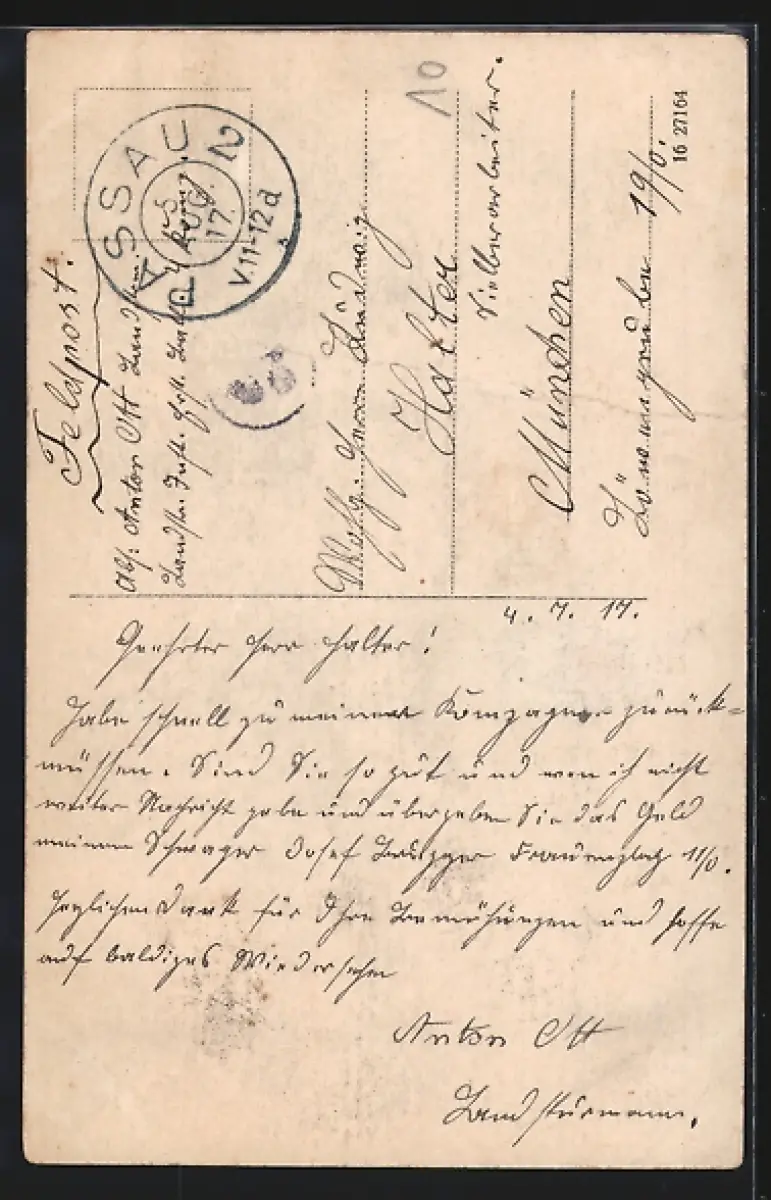 Feldpost.
Abs: Anton Ott Landstm.
Landstm. Inft. Ers. Batl.
PASSAU 2
5 AUG. 17.
V.11-12 d
10
Wohlg. Herrn Ludwig
Halter
Silberarbeiter.
München
Löwengrube 19/0.
16 27164
4. 7. 17.
Geehrter Herr Halter!
Habe schnell zu meiner Kompagnie zurück=
müssen. Sind Sie so gut und wen ich nicht
weiter Nachricht gebe und übergeben Sie das Geld
meinem Schwager Josef Frauenplatz 11/0.
Herzlichen Dank für Ihre Bemühungen und hoffe
auf baldiges Wiedersehn
Anton Ott
Landsturmann.